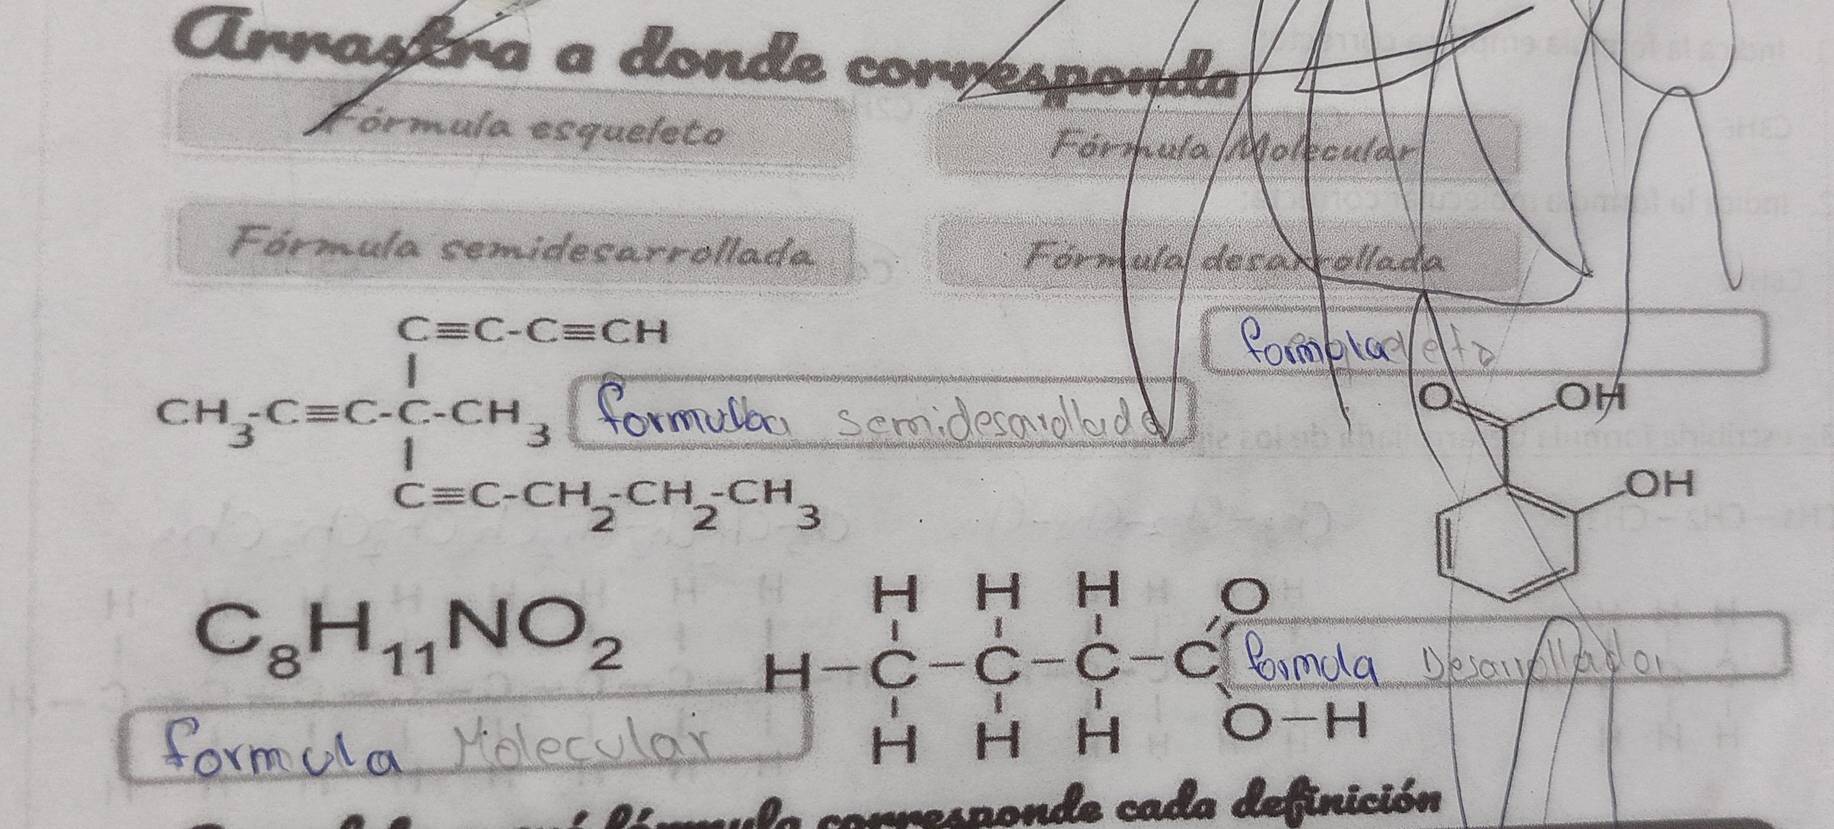 Arrastra a donde corresponda
Fórmula esqueleto
Fórmula Molecular
Fórmula semidesarrollada
Fórmula desarrollada
C≡C-C≡CH
CH3-C≡C-C-CH3
formula semidesarollada
C≡C-CH2-CH2-CH3
O OH
OH
C8H11NO2
formula Molecular
H H H O
H-C-C-C-C
formula Desarrollador
H H H O-H
fórmula corresponde cada definición